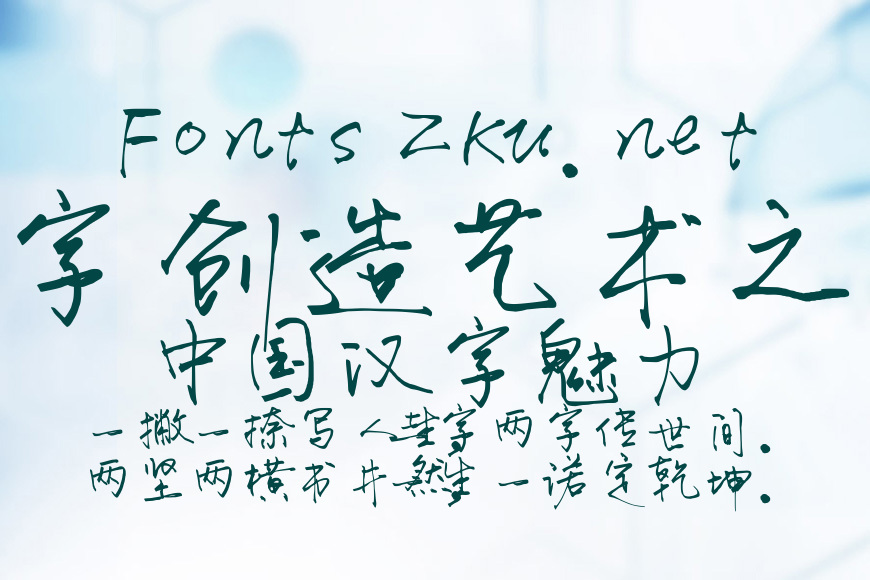 Fonts ZKu.net
字创造艺术之
中国汉字魅力
一撇一捺写人生字两字传世间.
两坚两横书井然生一诺定乾坤.